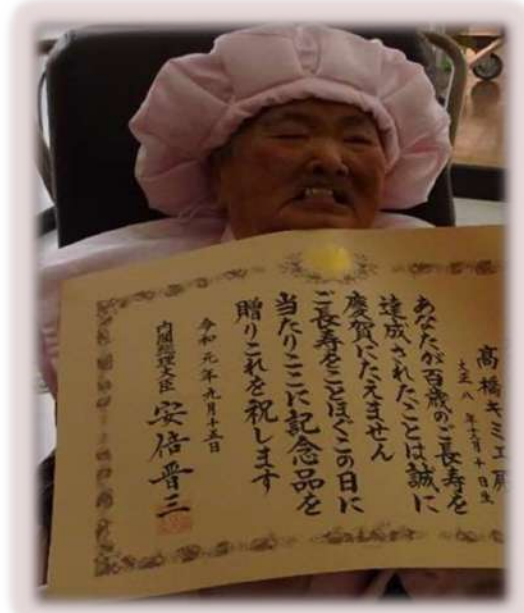 高橋キミエ殿
大正八年三月十日生
あなたが百歳のご長寿を
達成されたことは誠に
慶賀にたえません
ご長寿をことほぐこの日に
当たりここに記念品を
贈りこれを祝します
令和元年九月十五日
内閣総理大臣 安倍晋三